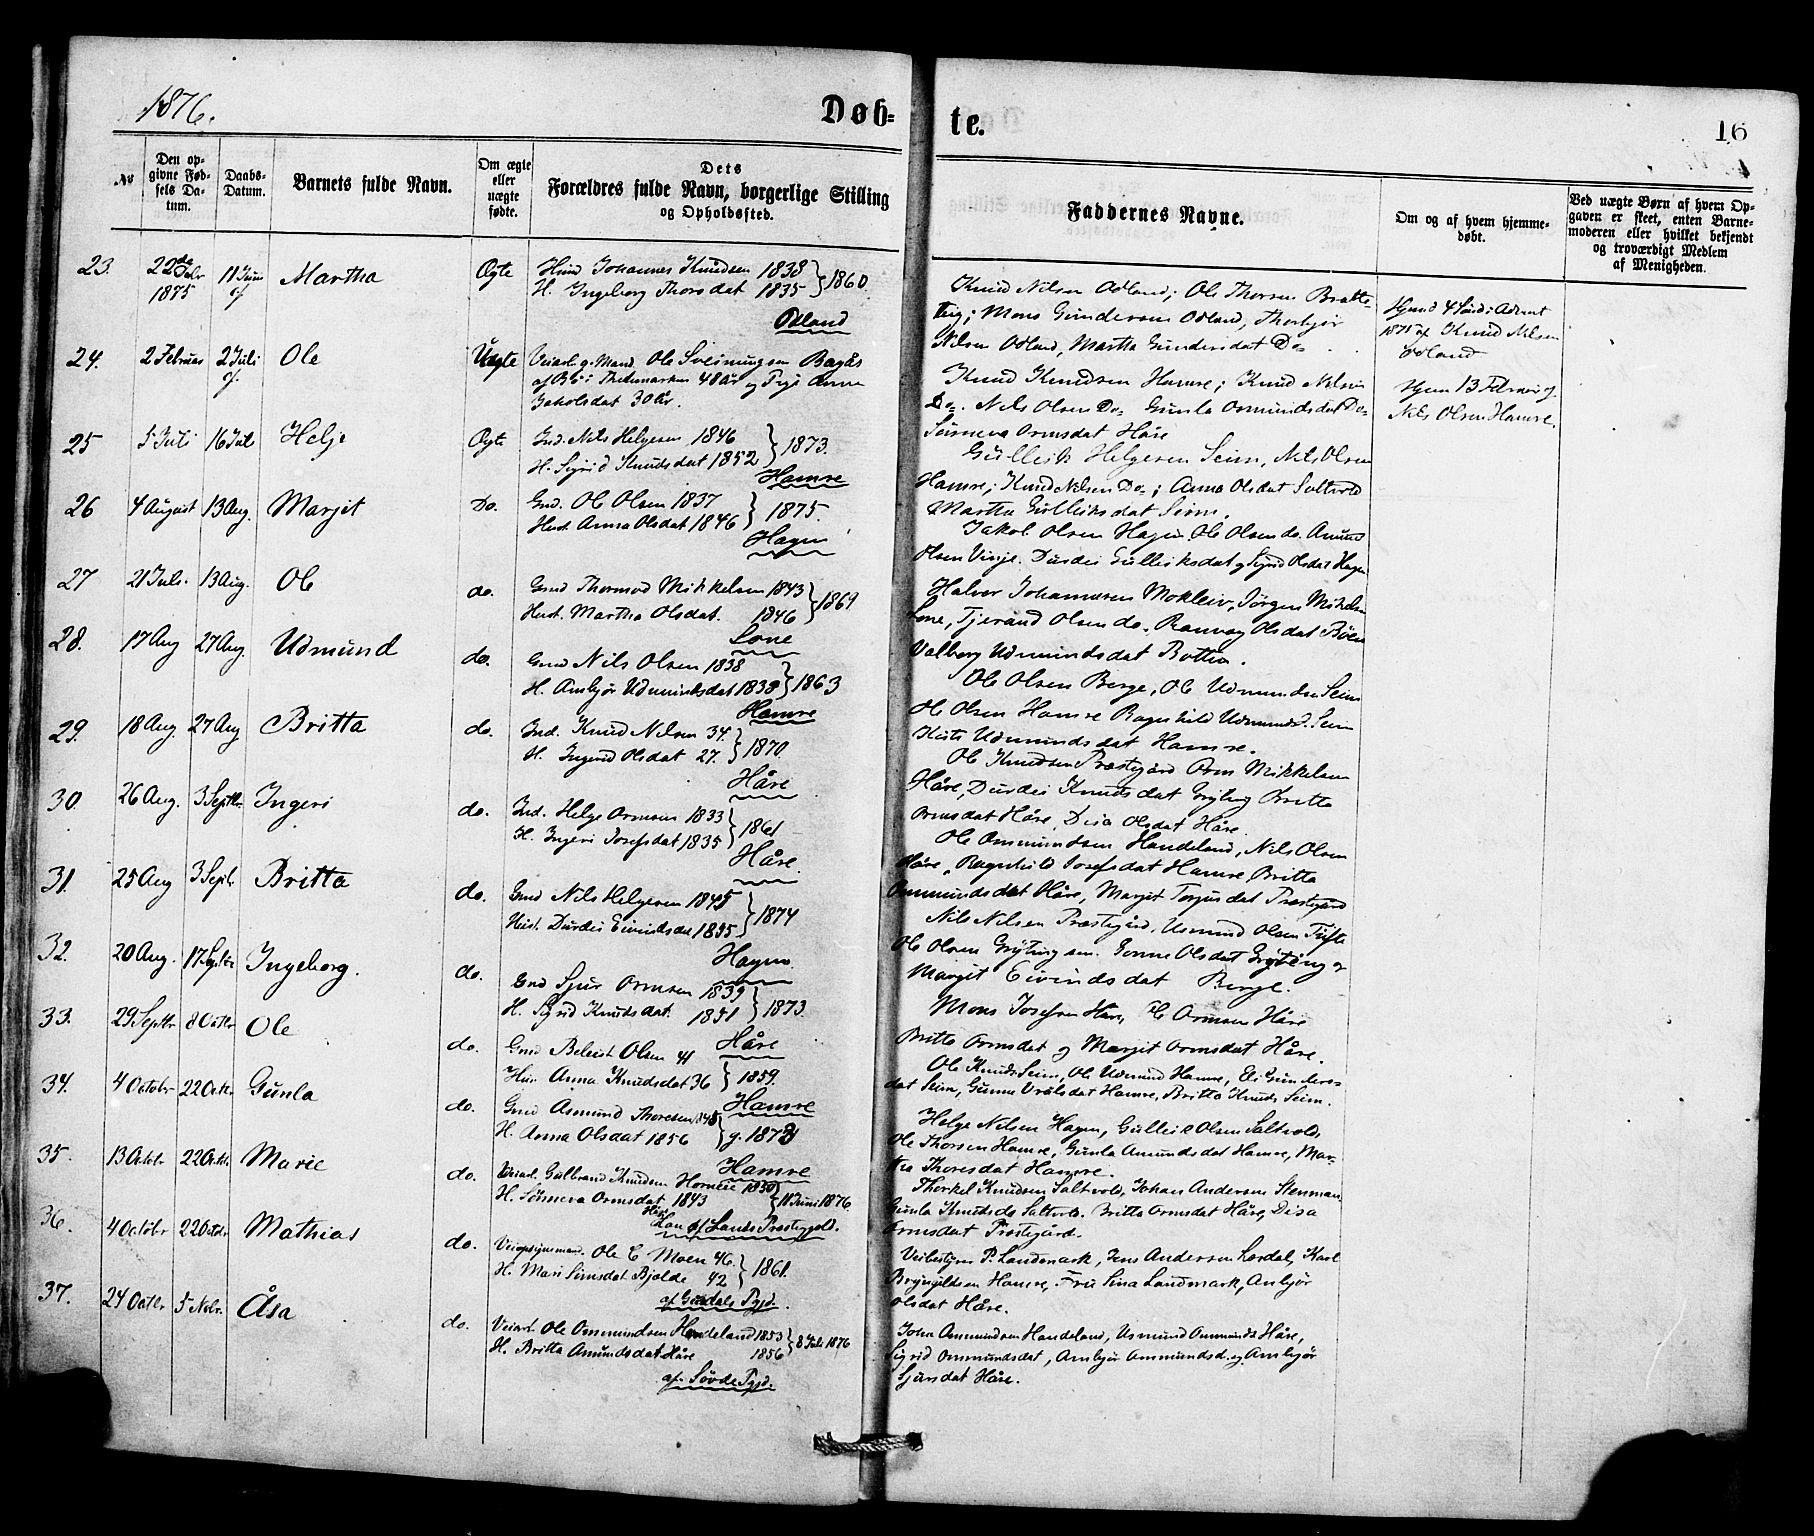 1876.
Døb-
te.
16
No
Den op-
givne Fød-
sels Da-
tum.
Daabs-
Datum.
Barnets fulde Navn.
Om ægte
eller
uægte
fødte.
Dets
Forældres fulde Navn, borgerlige Stilling
og Opholdssted.
Faddernes Navne.
Om og af hvem hjemme-
døbt.
Ved uægte Børn af hvem Op-
gaven er skeet, enten Barne-
moderen eller hvilket bekjendt
og troværdigt Medlem
af Menigheden.
23. 22de Febr 1875 11 Juni Martha Ægte
Johannes Knudsen 1838
H. Ingeborg Thorsdat 1835 } 1860
Odland
Knud Nilsen Odland; Ole Thorsen Bratte-
teig; Mons Gundersen Odland, Thorbjør
Nilsen Odland, Martha Gundersdat Do
1875 af Knud Nilsen
Odland
24. 2 Februar 2 Juli Ole Uægte
Veiarb. g. Mand Ole Sveinungsen Bagås
af Bø i Thelemarken 48 år og Pige Anna
Jakobsdat 30 år.
Knud Knudsen Hamre; Knud Nilsen
Do. Nils Olsen Do Gunla Osmundsdat Do
Sørneva Ormsdat Håre
Hjem 13 Februar af
Nils Olsen Hamre.
25 5 Juli 16 Juli Helje Ægte
Gmd. Nils Helgesen 1846
H. Sigrid Knudsdat 1852 } 1873.
Hamre
Gulleik Helgesen Seim, Nils Olsen
Hamre; Knud Nilsen Do; Anna Olsdat Saltvold
Martha Gulleiksdat Seim.
26 4 August 13 Aug. Marjit Do.
Gmd. Ole Olsen 1837
Hust. Anna Olsdat 1846 } 1875.
Hagen
Jakob Olsen Hagen, Ole Olsen do. Amund
Olsen Vinje. Durdei Gulleiksdat og Sigrid Olsdat Hagen
27 21 Juli. 13 Aug. Ole do.
Gmd Thormod Mikkelsen 1843
Hust. Martha Olsdat. 1846 } 1869
Lone
Halvor Johannesen Mokleiv, Jørgen Mikkelsen
Lone, Tjerand Olsen do. Ranvog Olsdat Bøen
Valborg Udmundsdat Botten.
28. 17 Aug 27 Aug. Udmund do.
Gmd Nils Olsen 1838
H. Ambjør Udmundsdat 1838 } 1863
Hamre
Ole Olsen Berge, Ole Udmundsen Seim
Ole Olsen Hamre Ragnhild Udmundsd. Seim
Udmundsdat Hamre.
29. 18 Aug. 27 Aug Britta do.
Gmd. Knud Nilsen 34.
H. Ingerid Olsdat 27. } 1870.
Håre
Ole Knudsen Præstegård Orm Mikkelsen
Håre, Durdei Knudsdat Gryting Britta
Ormsdat Håre, Disa Olsdat Håre.
30 26 Aug. 3 Septbr. Ingeri do.
Gmd. Helge Ormsen 1833
H. Ingeri Josefsdat 1835 } 1861
Håre.
Ole Ommundsen Handeland, Nils Olsen
Håre, Ragnhild Josefsdat Hamre Britta
Ommundsdat Håre, Marjit Torjusdat Præstegård
31. 25 Aug 3 Septr. Britta do.
Gmd Nils Helgesen 1845
Hust. Durdei Eivindsdat 1835 } 1874
Hagen.
Nils Nilsen Præstegård, Usmund Olsen Tufte
Ole Olsen Gryting sen. Gonne Olsdat Gryting og
Margit Eivindsdat Berge.
32. 20 Aug. 17 Septbr Ingeborg. do.
Gmd Sjur Ormsen 1839
H. Sigrid Knudsdat. 1851 } 1873.
Håre
Mons Josefsen Håre, Ole Ormsen Håre
Britta Ormsdat og Margit Ormsdat Håre.
33. 29 Septbr 8 Octbr Ole do.
Gmd Beleist Olsen 41
Hus. Anna Knudsdat 36 } 1859.
Hamre
Ole Knuds Seim, Ole Udmund Hamre, Eli Gunders-
dat Seim, Gunna Hamre, Britta Knuds Seim.
34. 4 Octobr 22 Octbr. Gunla do.
Gmd Asmund Thoresen 1845
H. Anna Olsdat 1856 } g. 1873
Hamre
Helge Nilsen Hagen, Gulleik Olsen Saltvold,
Ole Thorsen Hamre, Gunla Amundsdat Hamre, Mar-
tha Thoresdat Hamre.
35. 13 Octobr 22 Octbr. Marie do.
Veiarb. Gulbrand Knudsen Horneie 1850
H. Sørneva Ormsdat 1843 } 11 Juni 1876
Håre
Land Præstegjeld.
Thorkel Knudsen Saltvold, Johan Andersen Stenman
Gunla Knudsda Saltvold. Britta Ormsdat Håre, Disa
Ormsdat Præstegård.
36. 4 Octobr 22 Octbr Mathias do.
Veiopsynsmand. Ole C Moen 46.
H. Mari Simsdat Bjølde 42 } 1861.
Pgjd.
Veibestyrer P. Landmark, Jens Andersen Lærdal, Karl
Brynjildsen Hamre, Fru Sina Landmark, Ambjør
Olsdat Håre.
37. 24 Octbr 5 Novbr. Åsa do.
Veiarb. Ole Ommundsen Handeland 1853
H. Britta Amundsdat Håre 1856 } 8 Juli 1876
af Søvde Pgjd.
John Ammundsen Handeland, Usmund Ommunds Håre,
Sigrid Ommundsdat, Ambjør Ommundsd. og Ambjør
Sjursdat Håre.